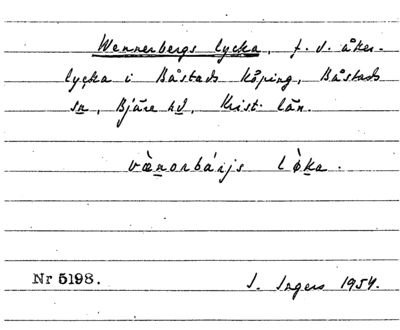 Wennerbergs lycka, f. d. åker-
lycka i Båstads köping, Båstads
sn, Bjäre hd, Krist. län.
vænorbárjs lø̀ka.
Nr 5198. I. Ingers 1954.